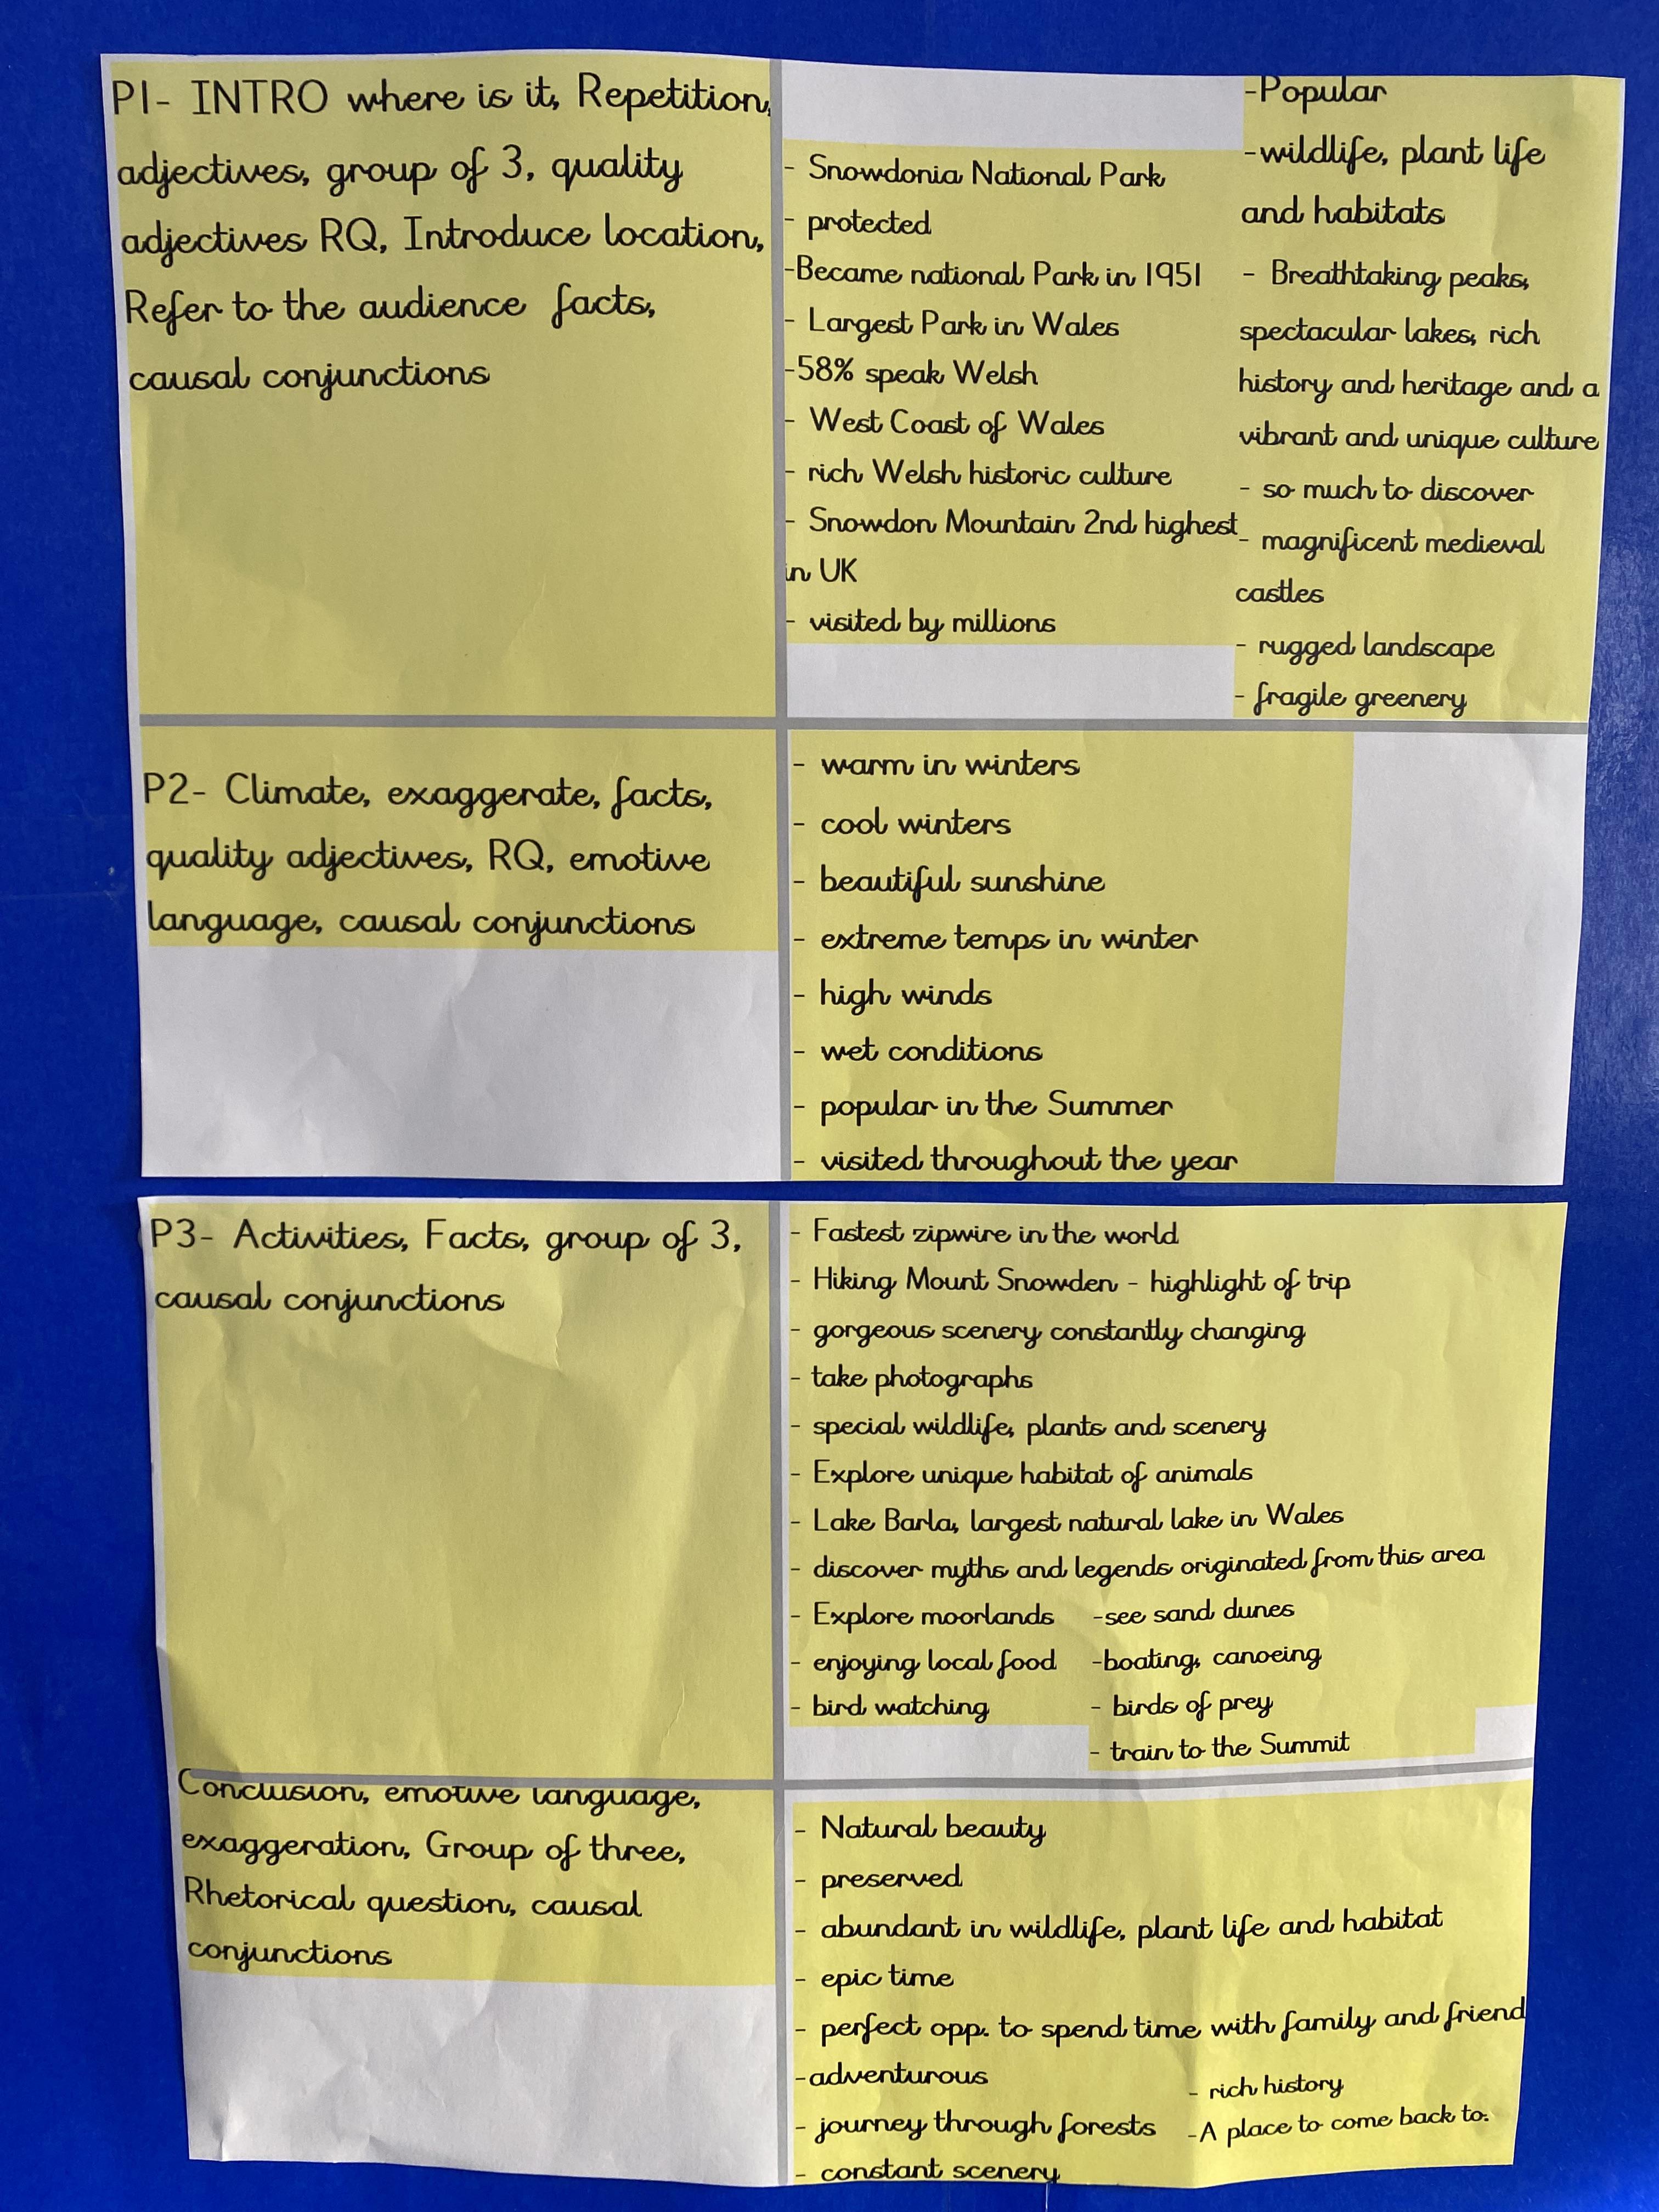 P1- INTRO where is it, Repetition,
adjectives, group of 3, quality
adjectives RQ, Introduce location,
Refer to the audience facts,
causal conjunctions
- Snowdonia National Park
- protected
-Became national Park in 1951
- Largest Park in Wales
-58% speak Welsh
- West Coast of Wales
- rich Welsh historic culture
- Snowdon Mountain 2nd highest
in UK
- visited by millions
-Popular
-wildlife, plant life
and habitats
- Breathtaking peaks,
spectacular lakes, rich
history and heritage and a
vibrant and unique culture
- so much to discover
- magnificent medieval
castles
- rugged landscape
- fragile greenery
P2- Climate, exaggerate, facts,
quality adjectives, RQ, emotive
language, causal conjunctions
- warm in winters
- cool winters
- beautiful sunshine
- extreme temps in winter
- high winds
- wet conditions
- popular in the Summer
- visited throughout the year
P3- Activities, Facts, group of 3,
causal conjunctions
- Fastest zipwire in the world
- Hiking Mount Snowden - highlight of trip
- gorgeous scenery constantly changing
- take photographs
- special wildlife, plants and scenery
- Explore unique habitat of animals
- Lake Barla, largest natural lake in Wales
- discover myths and legends originated from this area
- Explore moorlands
- enjoying local food
- bird watching
-see sand dunes
-boating, canoeing
- birds of prey
- train to the Summit
Conclusion, emotive language,
exaggeration, Group of three,
Rhetorical question, causal
conjunctions
- Natural beauty
- preserved
- abundant in wildlife, plant life and habitat
- epic time
- perfect opp. to spend time with family and friend
-adventurous
- journey through forests
- constant scenery
- rich history
-A place to come back to.